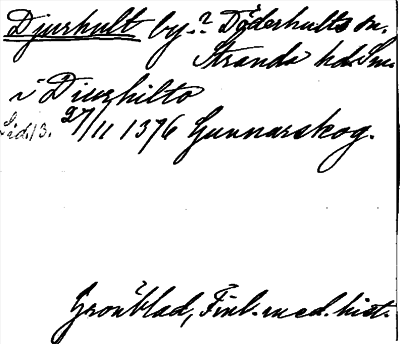 Djurhult by.? Döderhults sn.
Stranda hd. Sm.
i Diurhilto
Sid. 13. 27/11 1376 Gunnarskog.
Grönblad, Finl. med. hist.